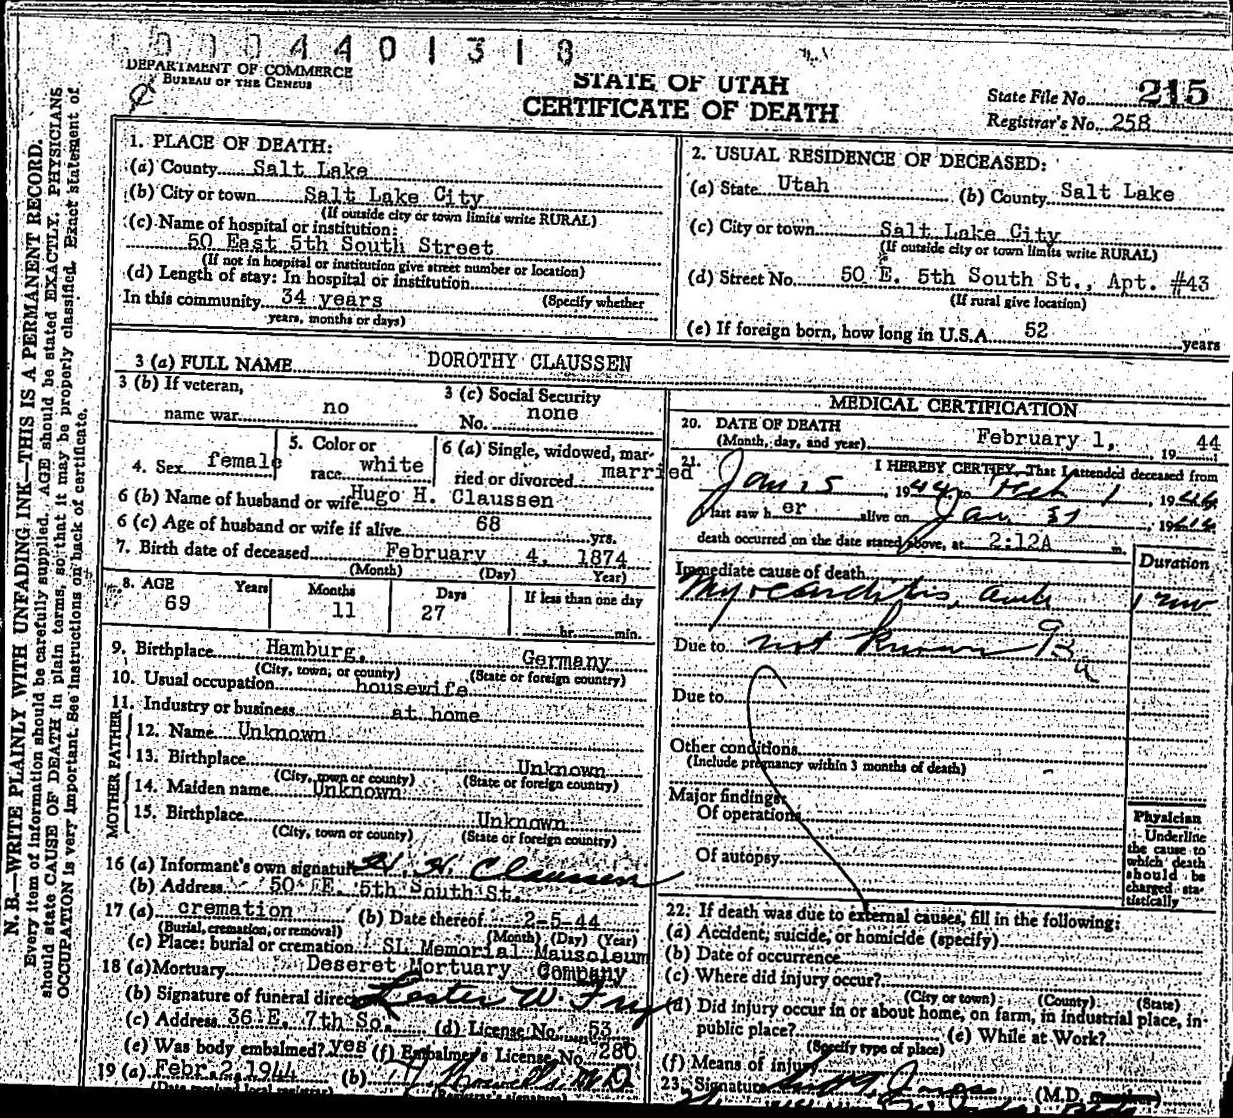 0004401318
DEPARTMENT OF COMMERCE
BUREAU OF THE CENSUS
STATE OF UTAH
CERTIFICATE OF DEATH
State File No. 215
Registrar's No. 258
N. B.—WRITE PLAINLY WITH UNFADING INK—THIS IS A PERMANENT RECORD.
Every item of information should be carefully supplied. AGE should be stated EXACTLY. PHYSICIANS
should state CAUSE OF DEATH in plain terms, so that it may be properly classified. Exact statement of
OCCUPATION is very important. See instructions on back of certificate.
1. PLACE OF DEATH:
(a) County Salt Lake
(b) City or town Salt Lake City
(If outside city or town limits write RURAL)
(c) Name of hospital or institution:
50 East 5th South Street
(If not in hospital or institution give street number or location)
(d) Length of stay: In hospital or institution
In this community 34 years (Specify whether
years, months or days)
2. USUAL RESIDENCE OF DECEASED:
(a) State Utah (b) County Salt Lake
(c) City or town Salt Lake City
(If outside city or town limits write RURAL)
(d) Street No. 50 E. 5th South St., Apt. #43
(If rural give location)
(e) If foreign born, how long in U.S.A. 52 years
3 (a) FULL NAME DOROTHY CLAUSSEN
3 (b) If veteran,
name war no
3 (c) Social Security
No. none
4. Sex female
5. Color or
race white
6 (a) Single, widowed, mar-
ried or divorced married
6 (b) Name of husband or wife Hugo H. Claussen
6 (c) Age of husband or wife if alive 68 yrs.
7. Birth date of deceased February 4, 1874
(Month) (Day) Year)
8. AGE Years Months Days If less than one day
69 11 27
hr. min.
9. Birthplace Hamburg, Germany
(City, town, or county) (State or foreign country)
10. Usual occupation housewife
11. Industry or business at home
FATHER
12. Name Unknown
13. Birthplace Unknown
(City, town or county) (State or foreign country)
MOTHER
14. Maiden name Unknown
15. Birthplace Unknown
(City, town or county) (State or foreign country)
16 (a) Informant's own signature H. H. Claussen
(b) Address 50 E. 5th South St.
17 (a) cremation (b) Date thereof 2-5-44
(Burial, cremation, or removal) (Month) (Day) (Year)
(c) Place: burial or cremation SL Memorial Mausoleum
18 (a) Mortuary Deseret Mortuary Company
(b) Signature of funeral director Lester W. Fry
(c) Address 36 E. 7th So. (d) License No. 53
(e) Was body embalmed? yes (f) Embalmer's License No. 280
19 (a) Febr. 2, 1944 (b) M.D.
MEDICAL CERTIFICATION
20. DATE OF DEATH
(Month, day, and year) February 1, 19 44
21. I HEREBY CERTIFY, That I attended deceased from
Jan 25, 1944 to Feb 1 1944
I last saw her alive on Jan. 31, 1944
death occurred on the date stated above, at 2:12A m.
Duration
Immediate cause of death
Myocarditis, acute
Due to not known
Due to
Other conditions
(Include pregnancy within 3 months of death)
Major findings:
Of operations
Of autopsy
Physician
Underline
the cause to
which death
should be
charged sta-
tistically
22. If death was due to external causes, fill in the following:
(a) Accident, suicide, or homicide (specify)
(b) Date of occurrence
(c) Where did injury occur?
(City or town) (County) (State)
(d) Did injury occur in or about home, on farm, in industrial place, in
public place? (e) While at Work?
(Specify type of place)
(f) Means of injury
23. Signature Jones (M.D.